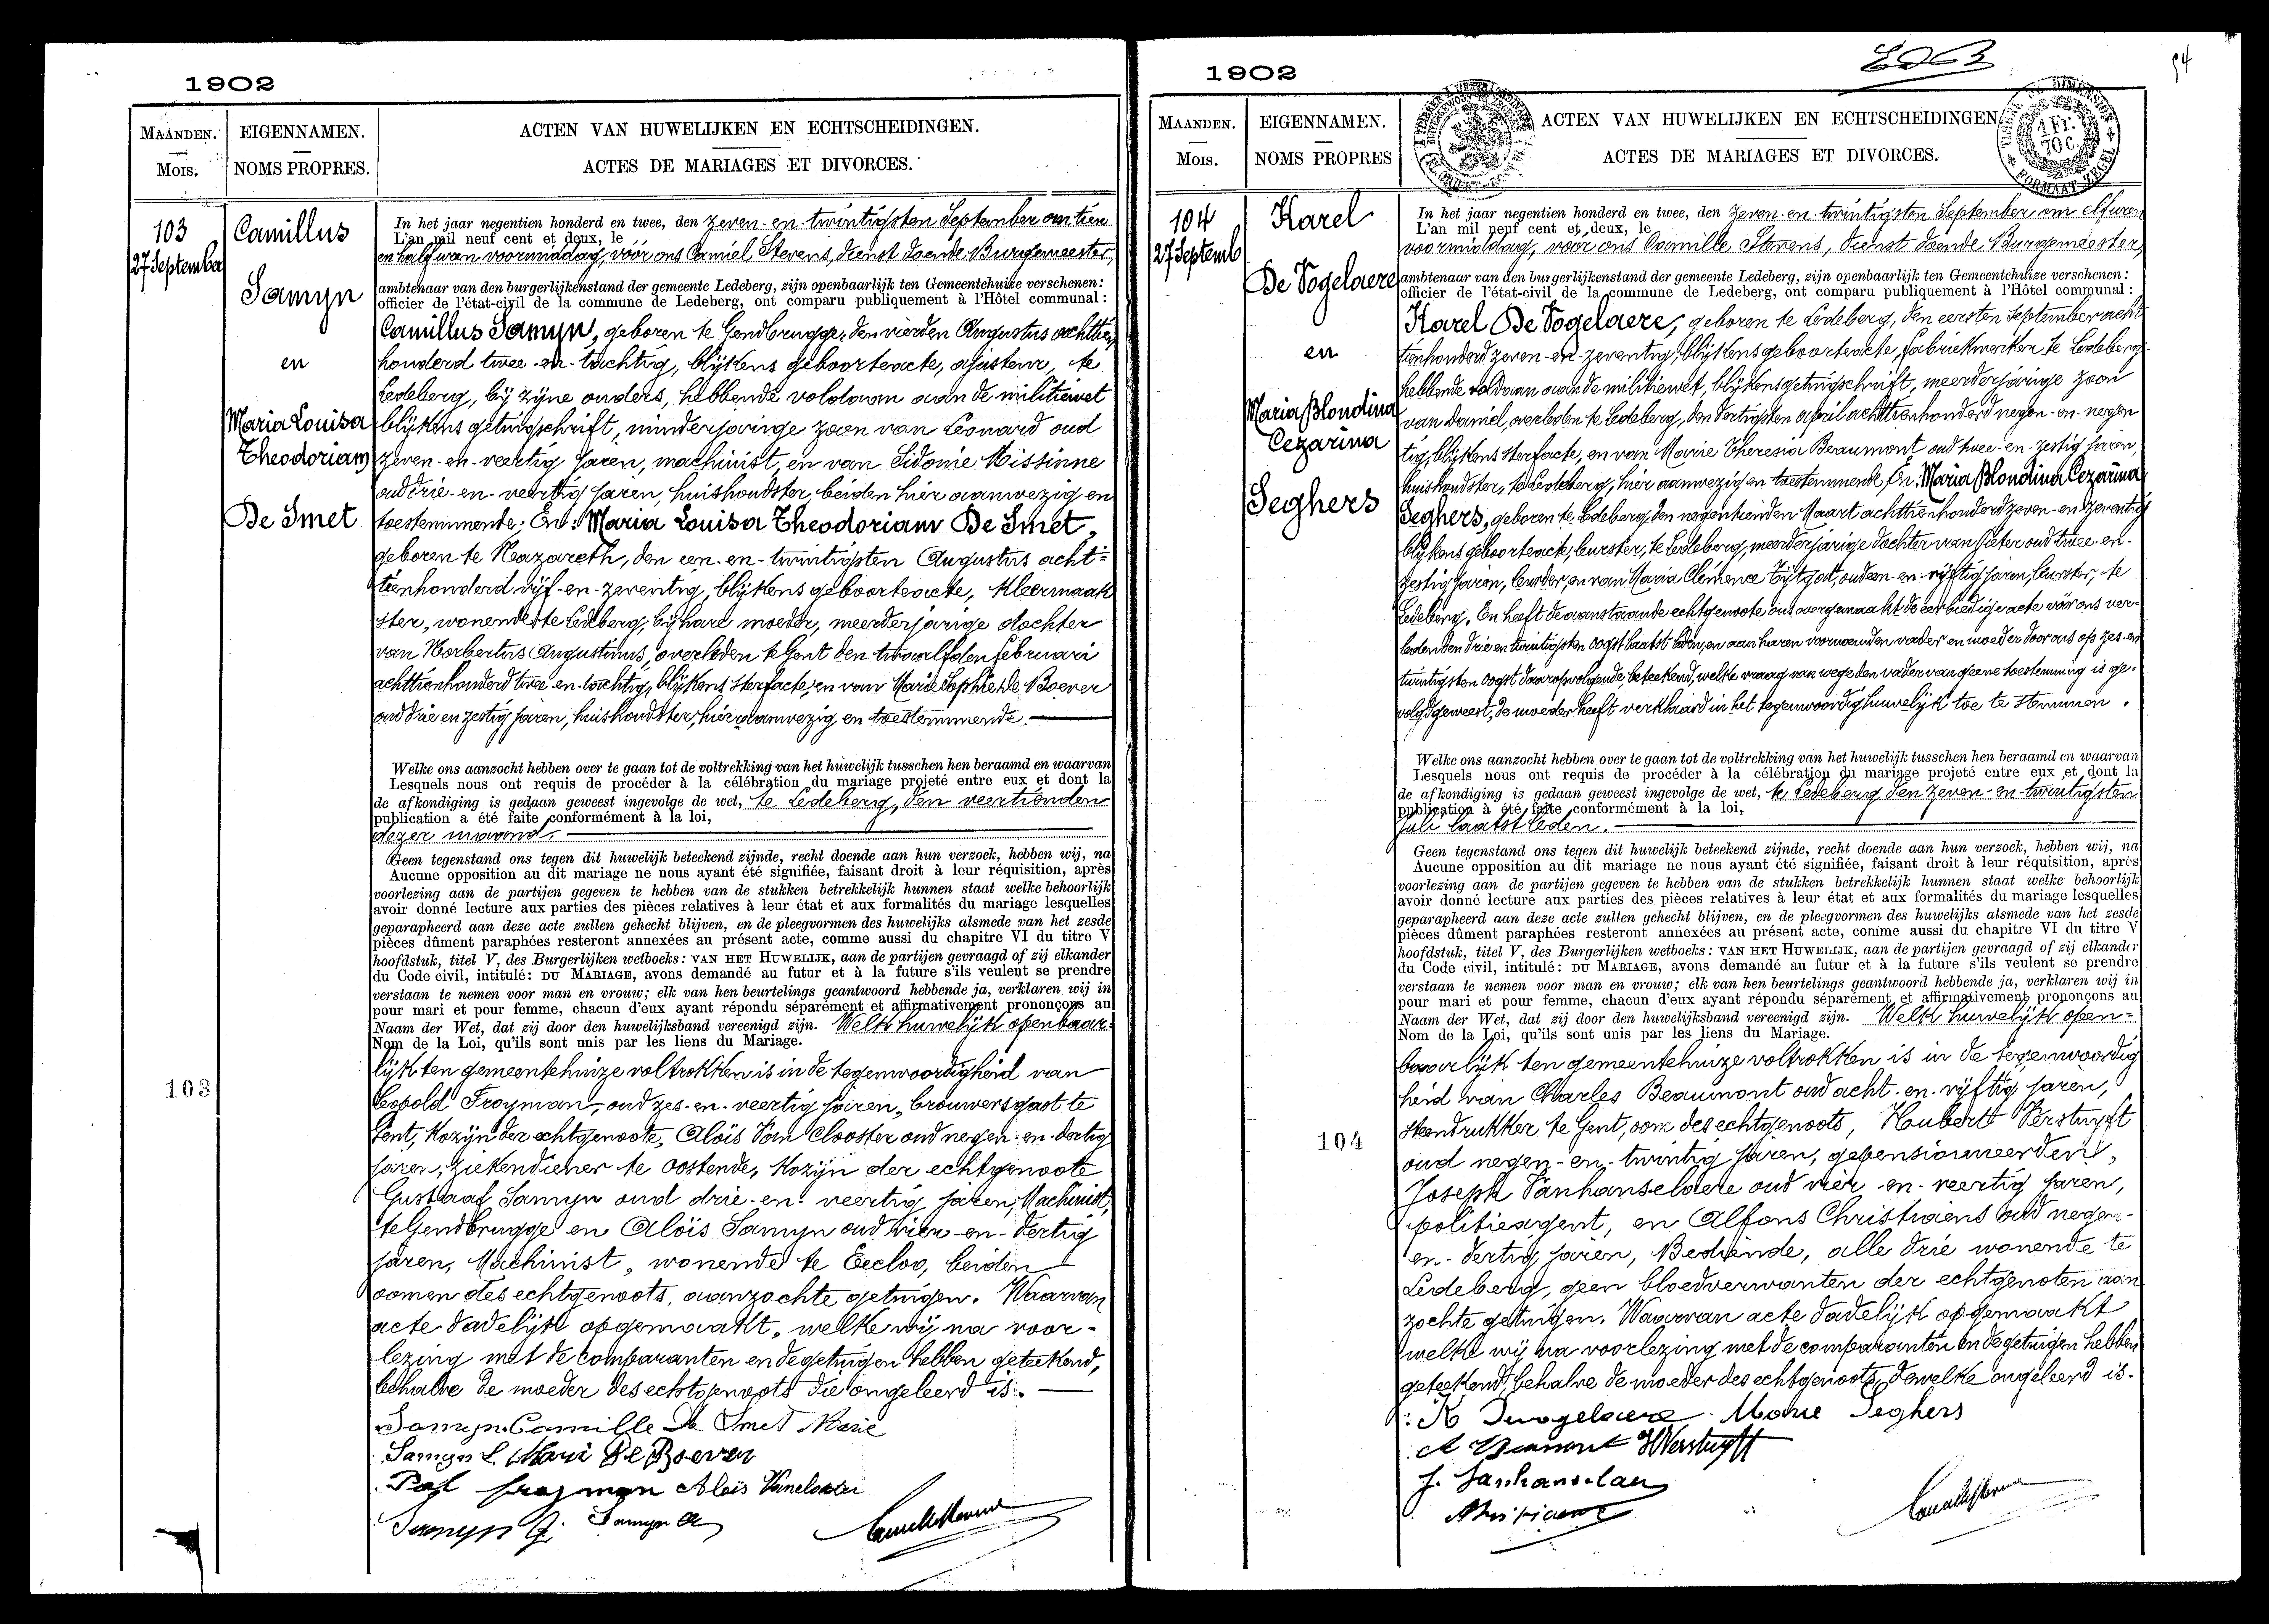 1902
MAANDEN.
Mois.
EIGENNAMEN.
NOMS PROPRES.
ACTEN VAN HUWELIJKEN EN ECHTSCHEIDINGEN.
ACTES DE MARIAGES ET DIVORCES.
103
27 September
Camillus
Samyn
en
Maria Louisa
Theodoriam
De Smet
In het jaar negentien honderd en twee, den zeven-en-twintigsten September om tien
L'an mil neuf cent et deux, le
en half uren voormiddag, vóór ons Camiel Stevens, dienst doende Burgemeester,
ambtenaar van den burgerlijkenstand der gemeente Ledeberg, zijn openbaarlijk ten Gemeentehuize verschenen:
officier de l'état-civil de la commune de Ledeberg, ont comparu publiquement à l'Hôtel communal:
Camillus Samyn, geboren te Gendbrugge, den vierden Augustus achttien
honderd twee-en-tachtig, blijkens geboorteacte, ajusteur, te
Ledeberg, bij zijne ouders, hebbende voldaan aan de militiewet
blijkens getuigschrift, minderjarige zoon van Leonard oud
zeven-en-veertig jaren, machinist, en van Sidonie Missinne
oud drie-en-veertig jaren, huishoudster, beiden hier aanwezig en
toestemmende; En: Maria Louisa Theodoriam De Smet,
geboren te Nazareth, den een-en-twintigsten Augustus acht=
tienhonderd vijf-en-zeventig, blijkens geboorteacte, kleermaak
ster, wonende te Ledeberg, bij hare moeder, meerderjarige dochter
van Norbertus Augustinus, overleden te Gent den twaalfden februari
achttienhonderd twee-en-tachtig, blijkens sterfacte, en van Marie Sophie De Boever
oud drie en zestig jaren, huishoudster, hier aanwezig en toestemmende.
Welke ons aanzocht hebben over te gaan tot de voltrekking van het huwelijk tusschen hen beraamd en waarvan
Lesquels nous ont requis de procéder à la célébration du mariage projeté entre eux et dont la
de afkondiging is gedaan geweest ingevolge de wet, te Ledeberg, den veertienden
publication a été faite conformément à la loi,
dezer maand.
Geen tegenstand ons tegen dit huwelijk beteekend zijnde, recht doende aan hun verzoek, hebben wij, na
Aucune opposition au dit mariage ne nous ayant été signifiée, faisant droit à leur réquisition, après
voorlezing aan de partijen gegeven te hebben van de stukken betrekkelijk hunnen staat welke behoorlijk
avoir donné lecture aux parties des pièces relatives à leur état et aux formalités du mariage lesquelles
geparapheerd aan deze acte zullen gehecht blijven, en de pleegvormen des huwelijks alsmede van het zesde
pièces dûment paraphées resteront annexées au présent acte, comme aussi du chapitre VI du titre V
hoofdstuk, titel V, des Burgerlijken wetboeks: VAN HET HUWELIJK, aan de partijen gevraagd of zij elkander
du Code civil, intitulé: DU MARIAGE, avons demandé au futur et à la future s'ils veulent se prendre
verstaan te nemen voor man en vrouw; elk van hen beurtelings geantwoord hebbende ja, verklaren wij in
pour mari et pour femme, chacun d'eux ayant répondu séparément et affirmativement prononçons au
Naam der Wet, dat zij door den huwelijksband vereenigd zijn. Welk huwelijk openbaar=
Nom de la Loi, qu'ils sont unis par les liens du Mariage.
lijk ten gemeentehuize voltrokken is in de tegenwoordigheid van
Leopold Froyman, oud zes-en-veertig jaren, brouwersgast te
Gent, kozijn der echtgenoote, Aloïs Van Clooster oud negen-en-dertig
jaren, ziekendiener te Oostende, kozijn der echtgenoote
Gustaaf Samyn oud drie-en-veertig jaren, Machinist,
te Gendbrugge en Aloïs Samyn oud vier-en-dertig
jaren, Machinist, wonende te Eecloo, beiden
oomen des echtgenoots, aanzochte getuigen. Waarvan
acte dadelijk opgemaakt, welke wij na voor-
lezing met de comparanten en de getuigen hebben geteekend,
behalve de moeder des echtgenoots die ongeleerd is.
103
Samyn Camille De Smet Marie
Samyn L Marie De Boever
Pol froyman Aloïs Vanclooster
Samyn G. Samyn A
Camille Stevens
1902
94
MAANDEN.
Mois.
EIGENNAMEN.
NOMS PROPRES
ACTEN VAN HUWELIJKEN EN ECHTSCHEIDINGEN
ACTES DE MARIAGES ET DIVORCES.
1 Fr.
70 C.
FORMAAT ZEGEL
104
27 Septemb
Karel
De Vogelaere
en
Maria Blondina
Cezarina
Seghers
In het jaar negentien honderd en twee, den zeven-en-twintigsten September om elf uren
L'an mil neuf cent et deux, le
voormiddag, vóór ons Camille Stevens, dienst doende Burgemeester,
ambtenaar van den burgerlijkenstand der gemeente Ledeberg, zijn openbaarlijk ten Gemeentehuize verschenen:
officier de l'état-civil de la commune de Ledeberg, ont comparu publiquement à l'Hôtel communal:
Karel De Vogelaere, geboren te Ledeberg, den eersten September acht
tienhonderd zeven-en-zeventig, blijkens geboorteacte, fabriekwerker te Ledeberg
hebbende voldaan aan de militiewet, blijkens getuigschrift, meerderjarige zoon
van Daniël, overleden te Ledeberg, den dertigsten april achttienhonderd negen-en-negen
tig, blijkens sterfacte, en van Marie Theresia Beaumont oud twee-en-zestig jaren,
huishoudster, te Ledeberg, hier aanwezig en toestemmende, En: Maria Blondina Cezarina
Seghers, geboren te Ledeberg, den negentienden Maart achttienhonderd zeven-en-zeventig
blijkens geboorteacte, leurster, te Ledeberg, meerderjarige dochter van Pieter oud twee-en-
zestig jaren, leurder, en van Maria Clémence Tijtgat, oud een-en-vijftig jaren, leurster, te
Ledeberg. En heeft de aanstaande echtgenoote ons overgemaakt de eerbiedige acte vóór ons ver-
leden den drie en twintigsten oogst laatst leden, en aan haren voornoemden vader en moeder door ons op zes-en
twintigsten oogst daaropvolgende, beteekend, welke vraag van wege den vader van geene toestemming is ge-
volgd geweest, de moeder heeft verklaard in het tegenwoordig huwelijk toe te stemmen.
Welke ons aanzocht hebben over te gaan tot de voltrekking van het huwelijk tusschen hen beraamd en waarvan
Lesquels nous ont requis de procéder à la célébration du mariage projeté entre eux et dont la
de afkondiging is gedaan geweest ingevolge de wet, te Ledeberg den zeven-en-twintigsten
publication a été faite conformément à la loi,
juli laatst leden.
Geen tegenstand ons tegen dit huwelijk beteekend zijnde, recht doende aan hun verzoek, hebben wij, na
Aucune opposition au dit mariage ne nous ayant été signifiée, faisant droit à leur réquisition, après
voorlezing aan de partijen gegeven te hebben van de stukken betrekkelijk hunnen staat welke behoorlijk
avoir donné lecture aux parties des pièces relatives à leur état et aux formalités du mariage lesquelles
geparapheerd aan deze acte zullen gehecht blijven, en de pleegvormen des huwelijks alsmede van het zesde
pièces dûment paraphées resteront annexées au présent acte, comme aussi du chapitre VI du titre V
hoofdstuk, titel V, des Burgerlijken wetboeks: VAN HET HUWELIJK, aan de partijen gevraagd of zij elkander
du Code civil, intitulé: DU MARIAGE, avons demandé au futur et à la future s'ils veulent se prendre
verstaan te nemen voor man en vrouw; elk van hen beurtelings geantwoord hebbende ja, verklaren wij in
pour mari et pour femme, chacun d'eux ayant répondu séparément et affirmativement prononçons au
Naam der Wet, dat zij door den huwelijksband vereenigd zijn. Welk huwelijk open=
Nom de la Loi, qu'ils sont unis par les liens du Mariage.
baarlijk ten gemeentehuize voltrokken is in de tegenwoordig
heid van Charles Beaumont oud acht-en-vijftig jaren,
steendrukker te Gent, oom des echtgenoots, Houbert Verstuyft
oud negen-en-twintig jaren, gepensionneerden,
Joseph Vanhanselaere oud vier-en-veertig jaren,
politieagent, en Alfons Christiaens oud negen-
en-dertig jaren, Bediende, alle drie wonende te
Ledeberg, geen bloedverwanten der echtgenoten aan
zochte getuigen. Waarvan acte dadelijk opgemaakt
welke wij na voorlezing met de comparanten en de getuigen hebben
geteekend, behalve de moeder des echtgenoots, dewelke ongeleerd is.
104
K Devogelaere Marie Seghers
Beaumont H Verstuyft
J. Vanhanselaer
Christiaens
Camille Stevens